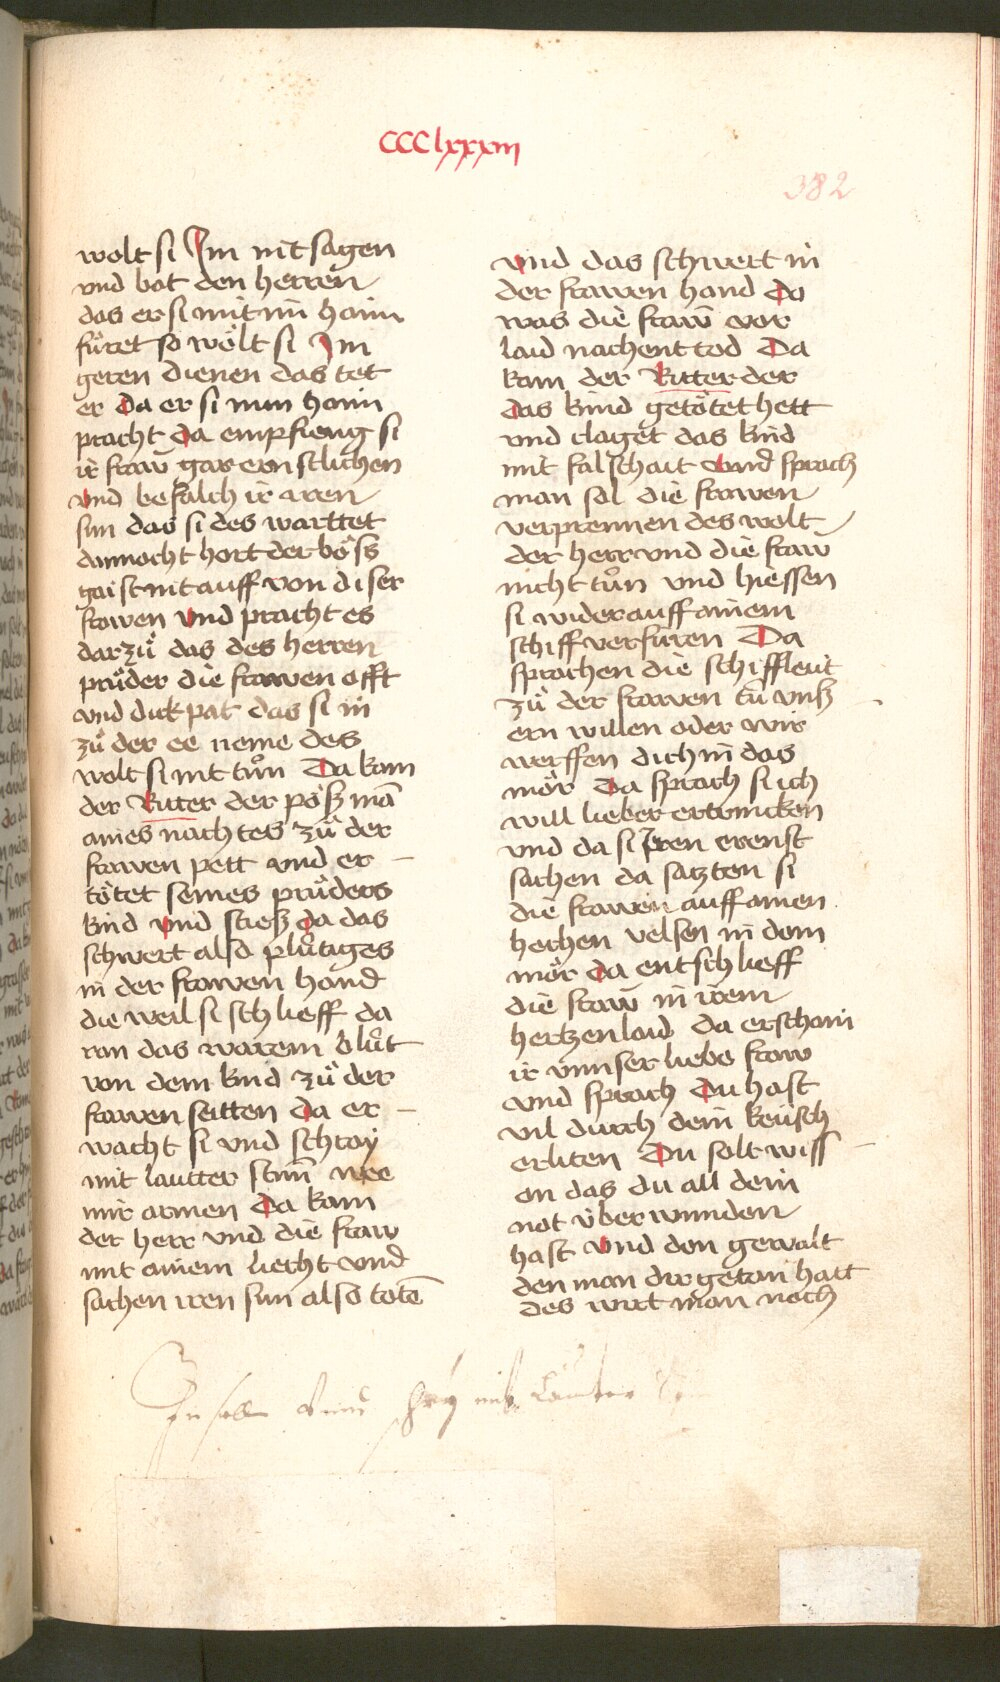 CCClxxxiii
382
wolt si Im nit sagen
vnd bat den herren
das er si mit im haim
fu̎ret so wo̎lt si Im
geren dienen das tet
er Da er si nun haim
pracht da empfieng si
ir fraw̄ gar ernstlichen
vnd befalch ir iren
sun das si des warttet
dannocht hort der bo̎ß
gaist nit auff von diser
frawen vnd pracht es
darzu̎ das des herren
pru̎der die frawen offt
vnd dick pat das si in
zu̎ der ee neme des
wolt si nit tůn Da kam
der Ritter der po̎ß mā
aines nachtes zu̎ der
frawen pett vnd er
to̎tet seines pru̎ders
kind vnd stieß da das
schwert also plu̎tiges
in der frawen hand
die weil si schlieff da
ran das warem blu̎t
von dem kind zu̎ der
frawen seitten Da er
wacht si vnd schray
mit lautter stim̄ wee
mir armen Da kam
der herr vnd die fraw
mit ainem liecht vnd
sachen iren sun also totē
vnd das schwert in
der frawen hand Do
was die fraw̄ vor
laid nachent tod Da
kam der Ritter der
das kind geto̎tet hett
vnd claget das kind
mit falschait vnd sprach
man sol die frawen
verprennen des wolt
der herr vnd die fraw̄
nicht tůn vnd hiessen
si wider auff ainem
schiff verfu̎ren Da
sprachen die schiffleut
zu̎ der frawen tu̎ vnß
ern willen oder wir
werffen dich in das
mo̎r Da sprach si ich
will lieber ertrincken
vnd da si Iren erenst
sachen da satzten si
die frawen auff ainen
hochen velsen in dem
mo̎r da entschlieff
die fraw̄ in irem
hertzenlaid da erschain
ir vnnser liebe fraw
vnd sprach Du hast
vil durch dein keüsch
erliten Du solt wiss
en das du all dein
not überwunden
hast vnd den gewalt
den man dir getan hatt
des wirt man noch